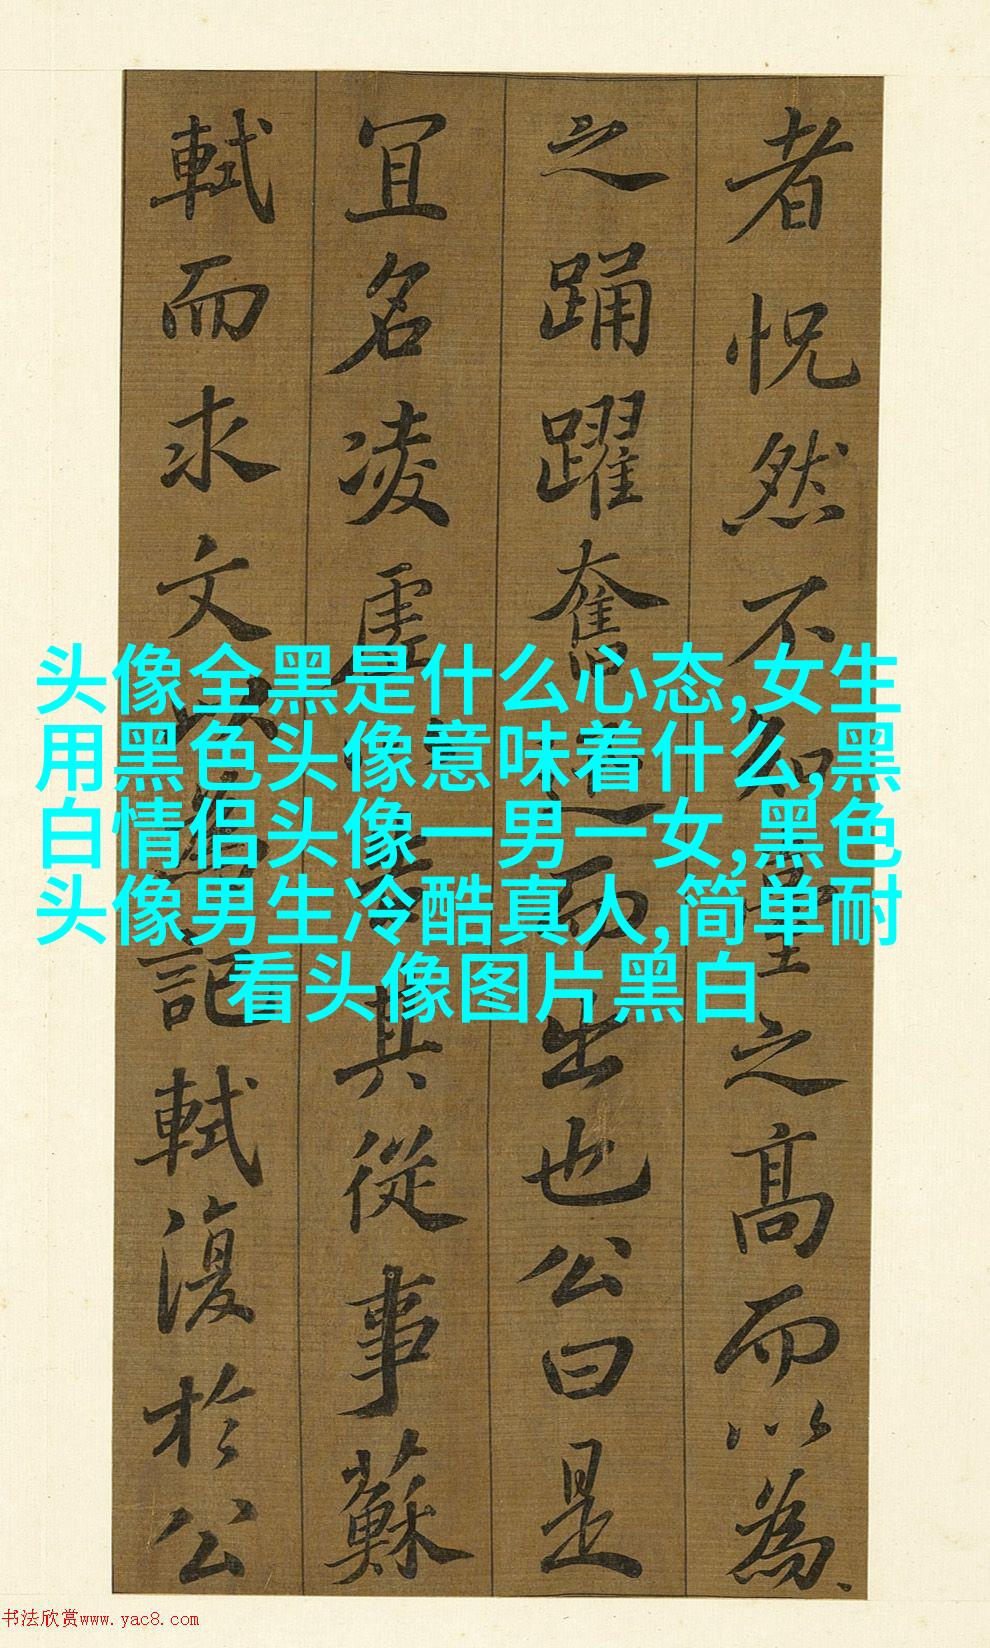 者怳然不知臺之髙而以為
之踊躍奮迅而出也公曰是
冝名凌虛以告其從事蘇
軾而求文以為記軾復於公
头像全黑是什么心态,女生
用黑色头像意味着什么,黑
白情侣头像一男一女,黑色
头像男生冷酷真人,简单耐
看头像图片黑白
书法欣赏www.yac8.com